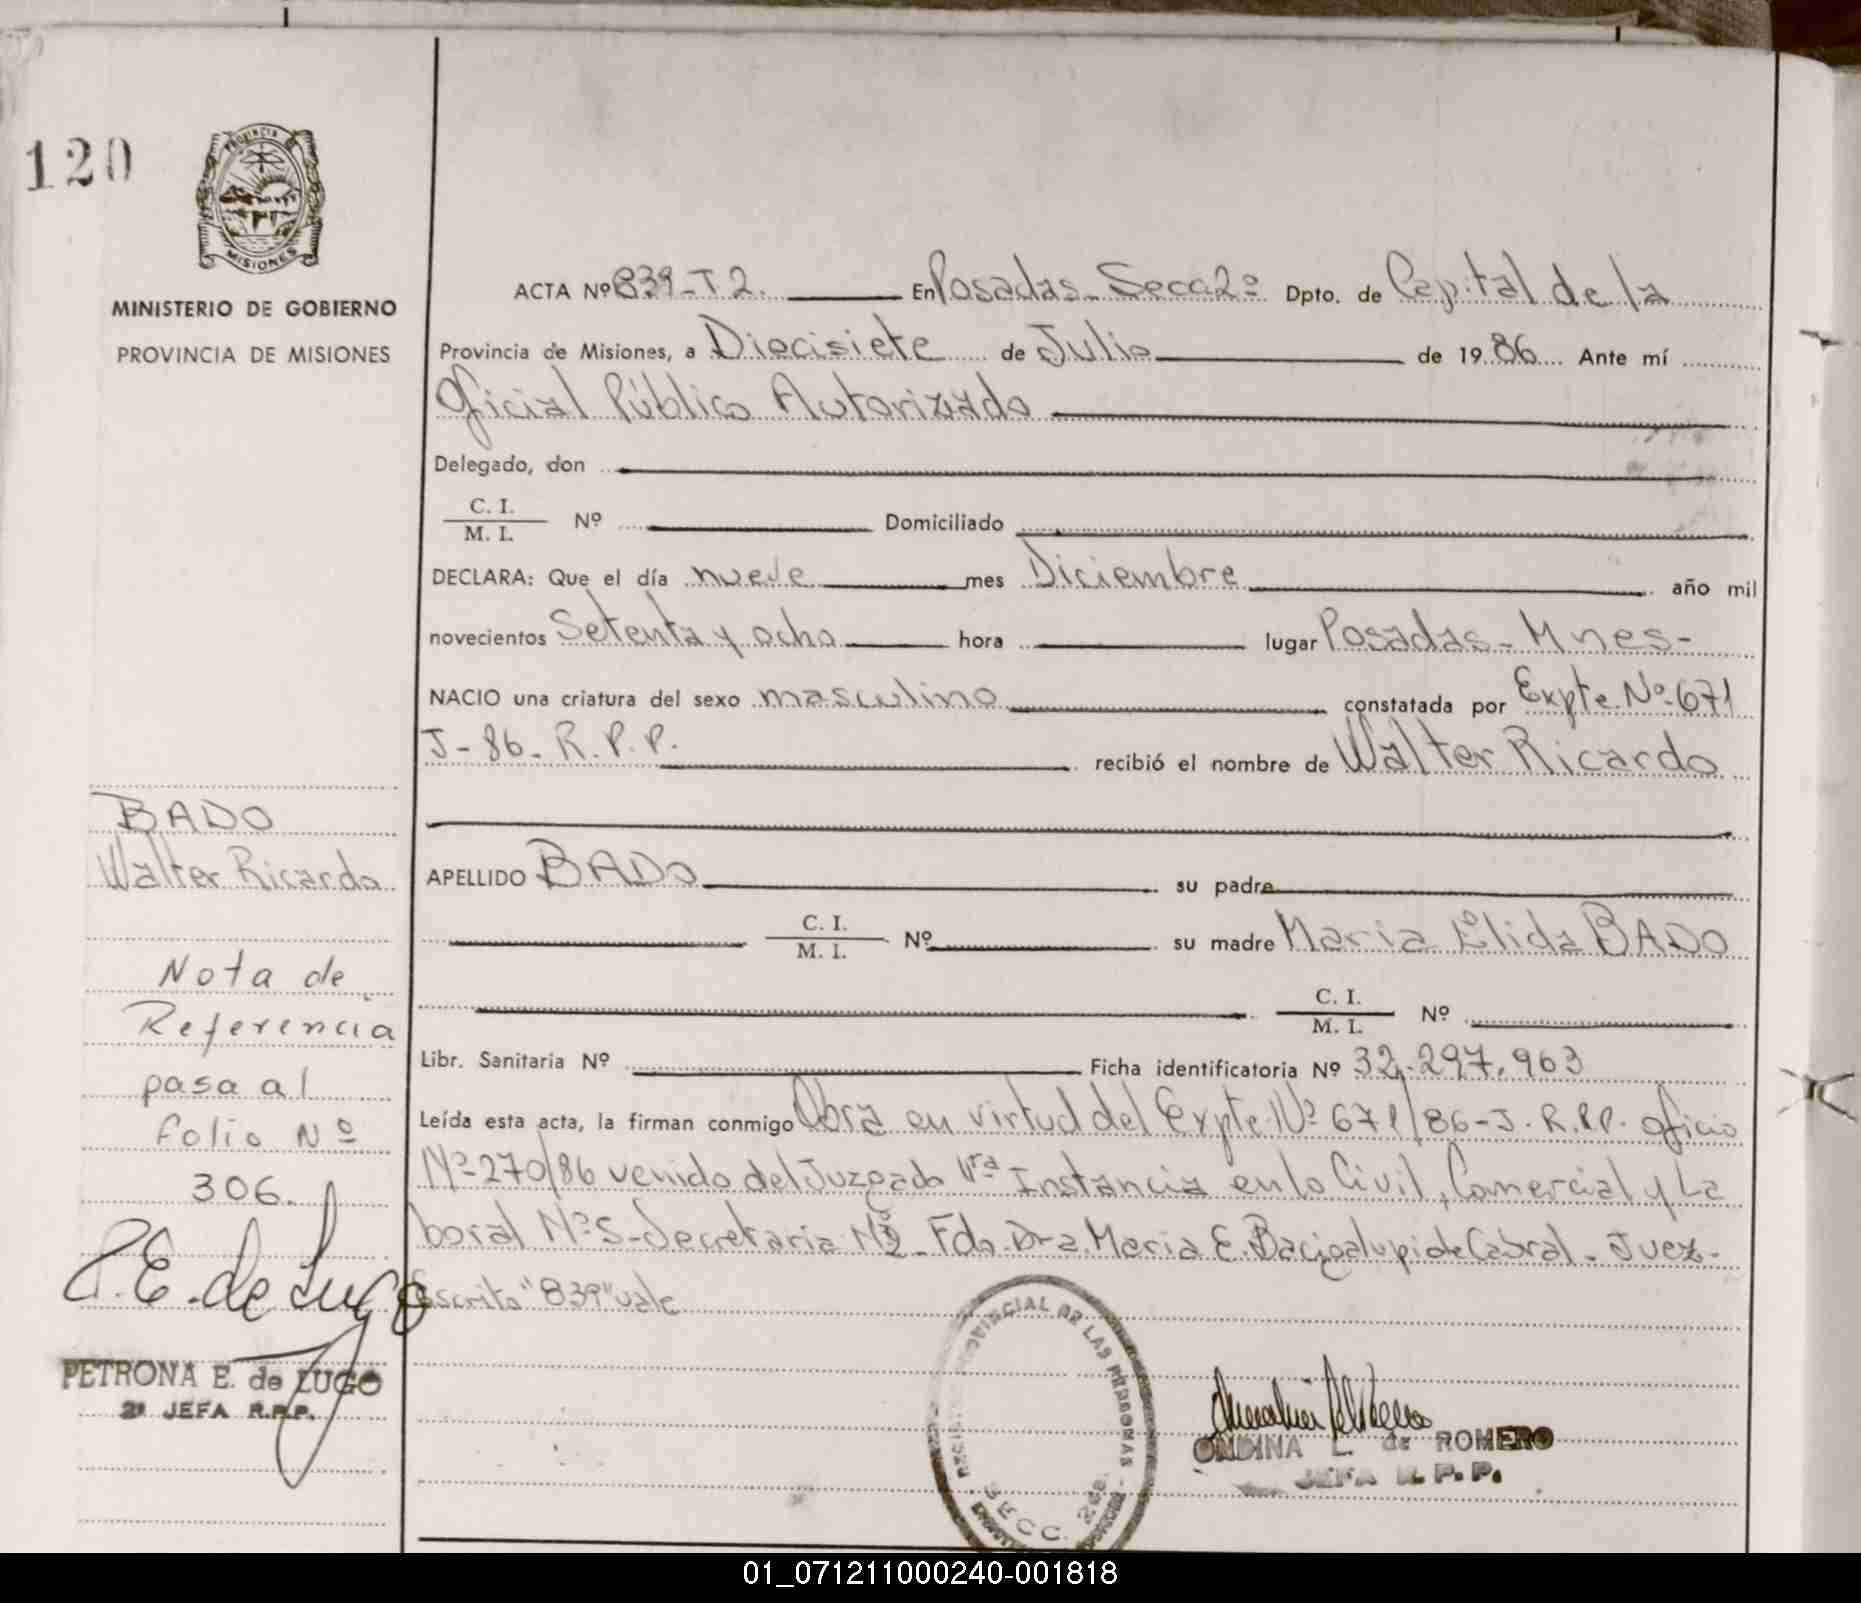 120
PROVINCIA
MISIONES
MINISTERIO DE GOBIERNO
PROVINCIA DE MISIONES
ACTA Nº 839-T2. En Posadas- Secc 2º Dpto. de Capital de la
Provincia de Misiones, a Diecisiete de Julio de 1986 Ante mí
Oficial Público Autorizado
Delegado, don
C. I.
M. I. Nº Domiciliado
DECLARA: Que el día nueve mes Diciembre año mil
novecientos Setenta y ocho hora lugar Posadas- Mnes-
NACIO una criatura del sexo masculino constatada por Expte. Nº-671
J-86- R.P.P. recibió el nombre de Walter Ricardo
APELLIDO BADO su padre
C. I.
M. I. Nº su madre Maria Elida BADO
C. I.
M. I. Nº
Libr. Sanitaria Nº Ficha identificatoria Nº 32.297.963
Leída esta acta, la firman conmigo Obra en virtud del Expte. Nº 671/86-J. R.P.P. oficio
Nº-270/86 venido del Juzgado 1ra Instancia en lo Civil, Comercial y La
boral Nº5-Secretaria Nº2- Fdo. Dra. Maria E. Bacigalupi de Cabral- Juez-
escrito "839" vale
BADO
Walter Ricardo
Nota de
Referencia
pasa al
folio Nº
306.
P.E. de Lugo
PETRONA E. de LUGO
2ª JEFA R.P.P.
PROVINCIAL DE LAS PERSONAS
SECC. 2da.
ONDINA L. de ROMERO
JEFA R.P.P.
01_071211000240-001818